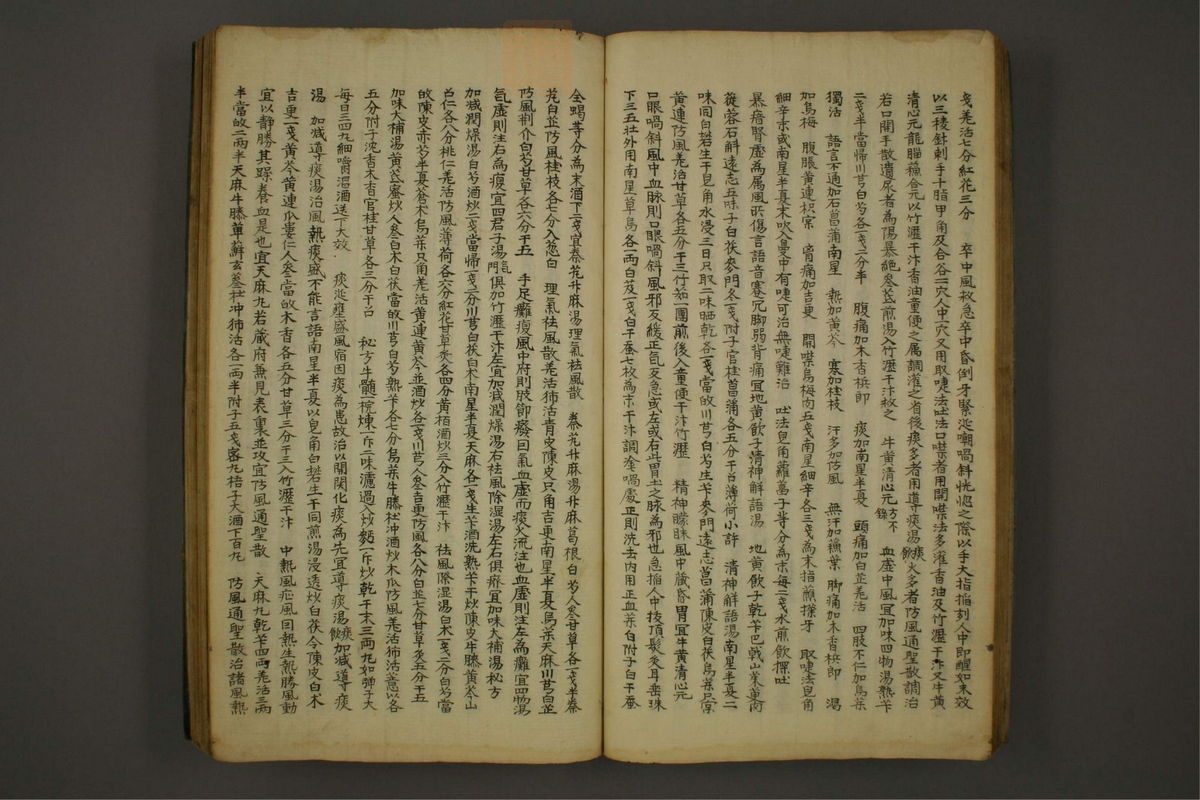 戔羌活七分紅花三分　卒中風救急卒中昏倒牙緊涎嘲喎斜恍惚之際以手大指掐刻人中即醒如未效
以三稜針刺手十指甲角及合谷二穴人中一穴又用取嚏法吐法口噤者用開噤法多灌香油及竹瀝干汁又牛黃
清心元龍腦蘓合元以竹瀝干汁香油童便之属調灌之省後痰多者用導痰湯火多者防風通聖散調治
若口開手散遺尿者為陽暴絶參芪煎湯入竹瀝干汁救之　牛黃清心元　血虛中風宜加味四物湯熟芐
二戔半當歸川芎白芍各一戔二分半　腹痛加木香梹郎　痰加南星半夏　頭痛加白芷羌活　四肢不仁加烏藥
獨活　語言不通加石菖蒲南星　熱加黃芩　寒加桂枝　汗多加防風　無汗加蘓葉　脚痛加木香梹郎　渴
加烏梅　腹脹黃連枳宲　脅痛加吉更　開噤烏梅肉五戔南星細辛各三戔為末指蘸擦牙　取嚏法皂角
細辛末或南星半夏末吹入鼻中有嚏可治無嚏難治　吐法皂角蘿葍子等分為末每二戔水煎飲探吐
暴瘖腎虛為厲風所傷言語音蹇冗脚弱背痛宜地黃飲子清神解語湯　地黃飲子乾芐巴戟山茱萸肉
蓯蓉石斛遠志五味子白茯麥門冬一戔附子官桂菖蒲各五分干召薄荷小許　清神解語湯南星半夏二
味同白礬生干皂角水浸三日只取二味晒乾各一戔當敀川芎白芍生芐麥門遠志菖蒲陳皮白茯烏藥只宲
黃連防風羌活甘草各五分干三竹茹一團煎後入童便干汁竹瀝　精神矇昧風中藏昏冒宜牛黃清心元
口眼喎斜風中血脉則口眼喎斜風邪反緩正氣反急或左或右此胃土之脉為邪也急掐人中拔頂髮炙耳垂珠
下三五壯外用南星草烏各一兩白芨一戔白干蚕七枚為末干汁調塗喎處正則洗去内用正血藥白附子白干蚕
全蝎等分為末酒下二戔宜秦芁升麻湯理氣祛風散　秦芁升麻湯升麻葛根白芍人參甘草各一戔半秦
芁白芷防風桂枝各七分入葱白　理氣祛風散羌活獨活青皮陳皮只角吉更南星半夏烏藥天麻川芎白芷
防風荊介白芍甘草各六分干五　手足癱瘓風中府則肢節癈曰氣血虛而痰火流注也血虛則注左為癱宜四物湯
氣虛則注右為瘓宜四君子湯俱加竹瀝干汁左宜加減潤燥湯右祛風除湿湯左右俱癈宜加味大補湯秘方
加減潤燥湯白芍酒炒二戔當歸一戔二分川芎白茯白朮南星半夏天麻各一戔生芐酒洗熟芐干炒陳皮牛膝黃芩山
召仁各八分桃仁羌活防風薄荷各六分紅花甘草炙各四分黃栢酒炒三分入竹瀝干汁　祛風除湿湯白朮一戔二分白芍當
敀陳皮赤芍半夏蒼朮烏藥只角羌活黃連黃芩並酒炒各一戔川芎人參吉更防風各八分白芷七分甘草炙五分干五
加味大補湯黃芪蜜炒人參白朮白茯當敀川芎白芍熟芐各七分烏藥牛膝杜冲酒炒木瓜防風羌活独活薏以各
五分附子沈香木香官桂甘草各三分干召　秘方牛髓一椀煉一斤二味濾過入炒麪一斤炒乾干末三兩丸如弹子大
每日三四丸細嚼温酒送下大效　痰涎壅盛風宿因痰為患故治以開関化痰為先宜導痰湯加減導痰
湯　加減導痰湯治風熱痰盛不能言語南星半夏以皂角白礬生干同煎湯浸透炒白茯令陳皮白朮
吉更一戔黃芩黃連瓜蔞仁人參當敀木香各五分甘草三分干三入竹瀝干汁　中熱風症風因熱生熱勝風動
宜以静勝其躁養血是也宜天麻丸若藏府無見表裏並攻宜防風通聖散　天麻丸乾芐四兩羌活三兩
半當敀二兩半天麻牛膝萆薢玄參杜冲独活各一兩半附子五戔蜜丸梧子大酒下百丸　防風通聖散治諸風熱